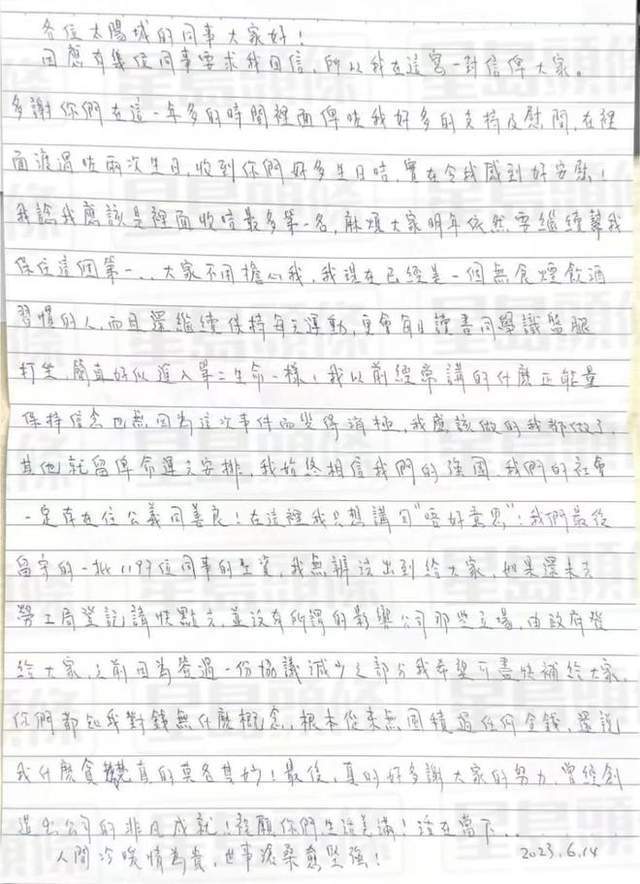 各位太陽城的同事大家好!
因應有幾位同事要求我回信,所以我在這寫一封信俾大家。
多謝你們在這一年多的時間裡面俾咗我好多的支持及慰問,在裡
面渡過咗兩次生日,收到你們好多生日咭,實在令我感到好安慰!
我諗我應該是裡面收信最多第一名,麻煩大家明年依然要繼續幫我
保住這個第一..大家不用擔心我,我現在已經是一個無食煙飲酒
習慣的人,而且還繼續保持每天運動,更會每日讀書同學識盤腿
打坐,簡直好似進入第二生命一樣,我以前經常講的什麼正能量
保持信念也無因為這次事件而變得消極,我應該做的我都做了,
其他就留俾命運去安排,我始終相信我們的強國,我們的社會
一定存在住公義同善良!在這裡我只想講句"唔好意思":我們最後
留守的一批1197位同事的工資,我無辦法出到給大家,如果還未去
勞工局登記請快點去,並沒有所謂的影響公司那些立場,由政府發
給大家,之前因為簽過一份協議減少之部分我希望可盡快補給大家,
你們都知我對錢無什麼概念,根本從來無囤積過任何金錢,還說
我什麼貪 真的莫名其妙!最後,真的好多謝大家的努力,曾經創
造出公司的非凡成就!祝願你們生活美滿!活在當下..
人間冷暖情為貴,世事滄桑愈堅強!
2023.6.14
星島頭條